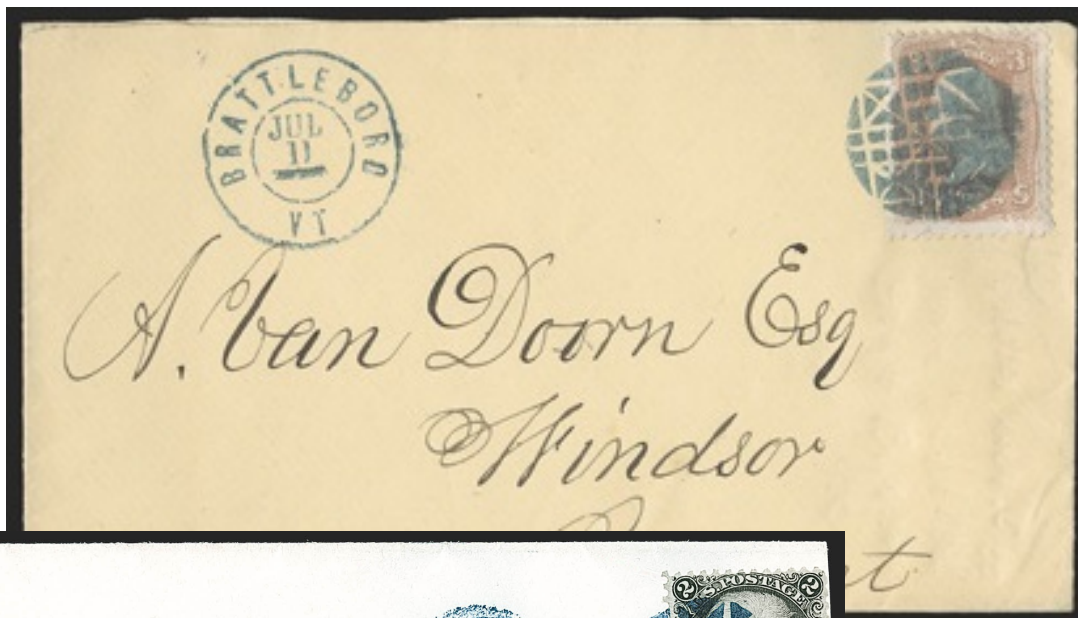 BRATTLEBORO
JUL
11
VT
3
A. Van Doorn Esq
Windsor
2 U.S. POSTAGE 2